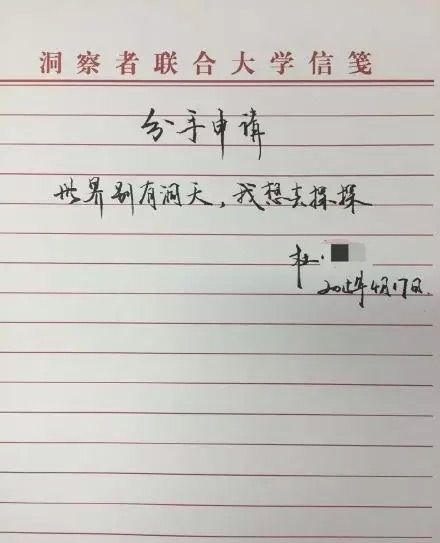 洞察者联合大学信笺
分手申請
世界别有洞天，我想去探探
杜·
2015年4月17日.